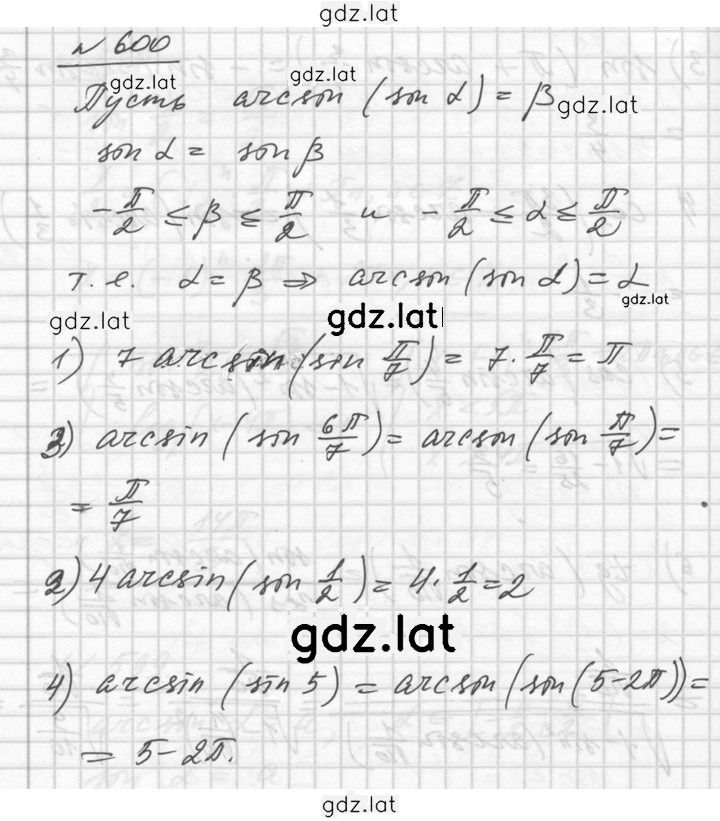 gdz.lat
№ 600
gdz.lat gdz.lat
Пусть arcsin (sin α) = β gdz.lat
sin α = sin β
-π/2 ≤ β ≤ π/2 и -π/2 ≤ α ≤ π/2
т.е. α = β ⇒ arcsin (sin α) = α
gdz.lat gdz.lat gdz.lat
1) 7 arcsin (sin π/7) = 7·π/7 = π
3) arcsin (sin 6π/7) = arcsin (sin π/7) =
= π/7
2) 4 arcsin (sin 1/2) = 4·1/2 = 2
gdz.lat
4) arcsin (sin 5) = arcsin (sin (5-2π)) =
= 5-2π.
gdz.lat